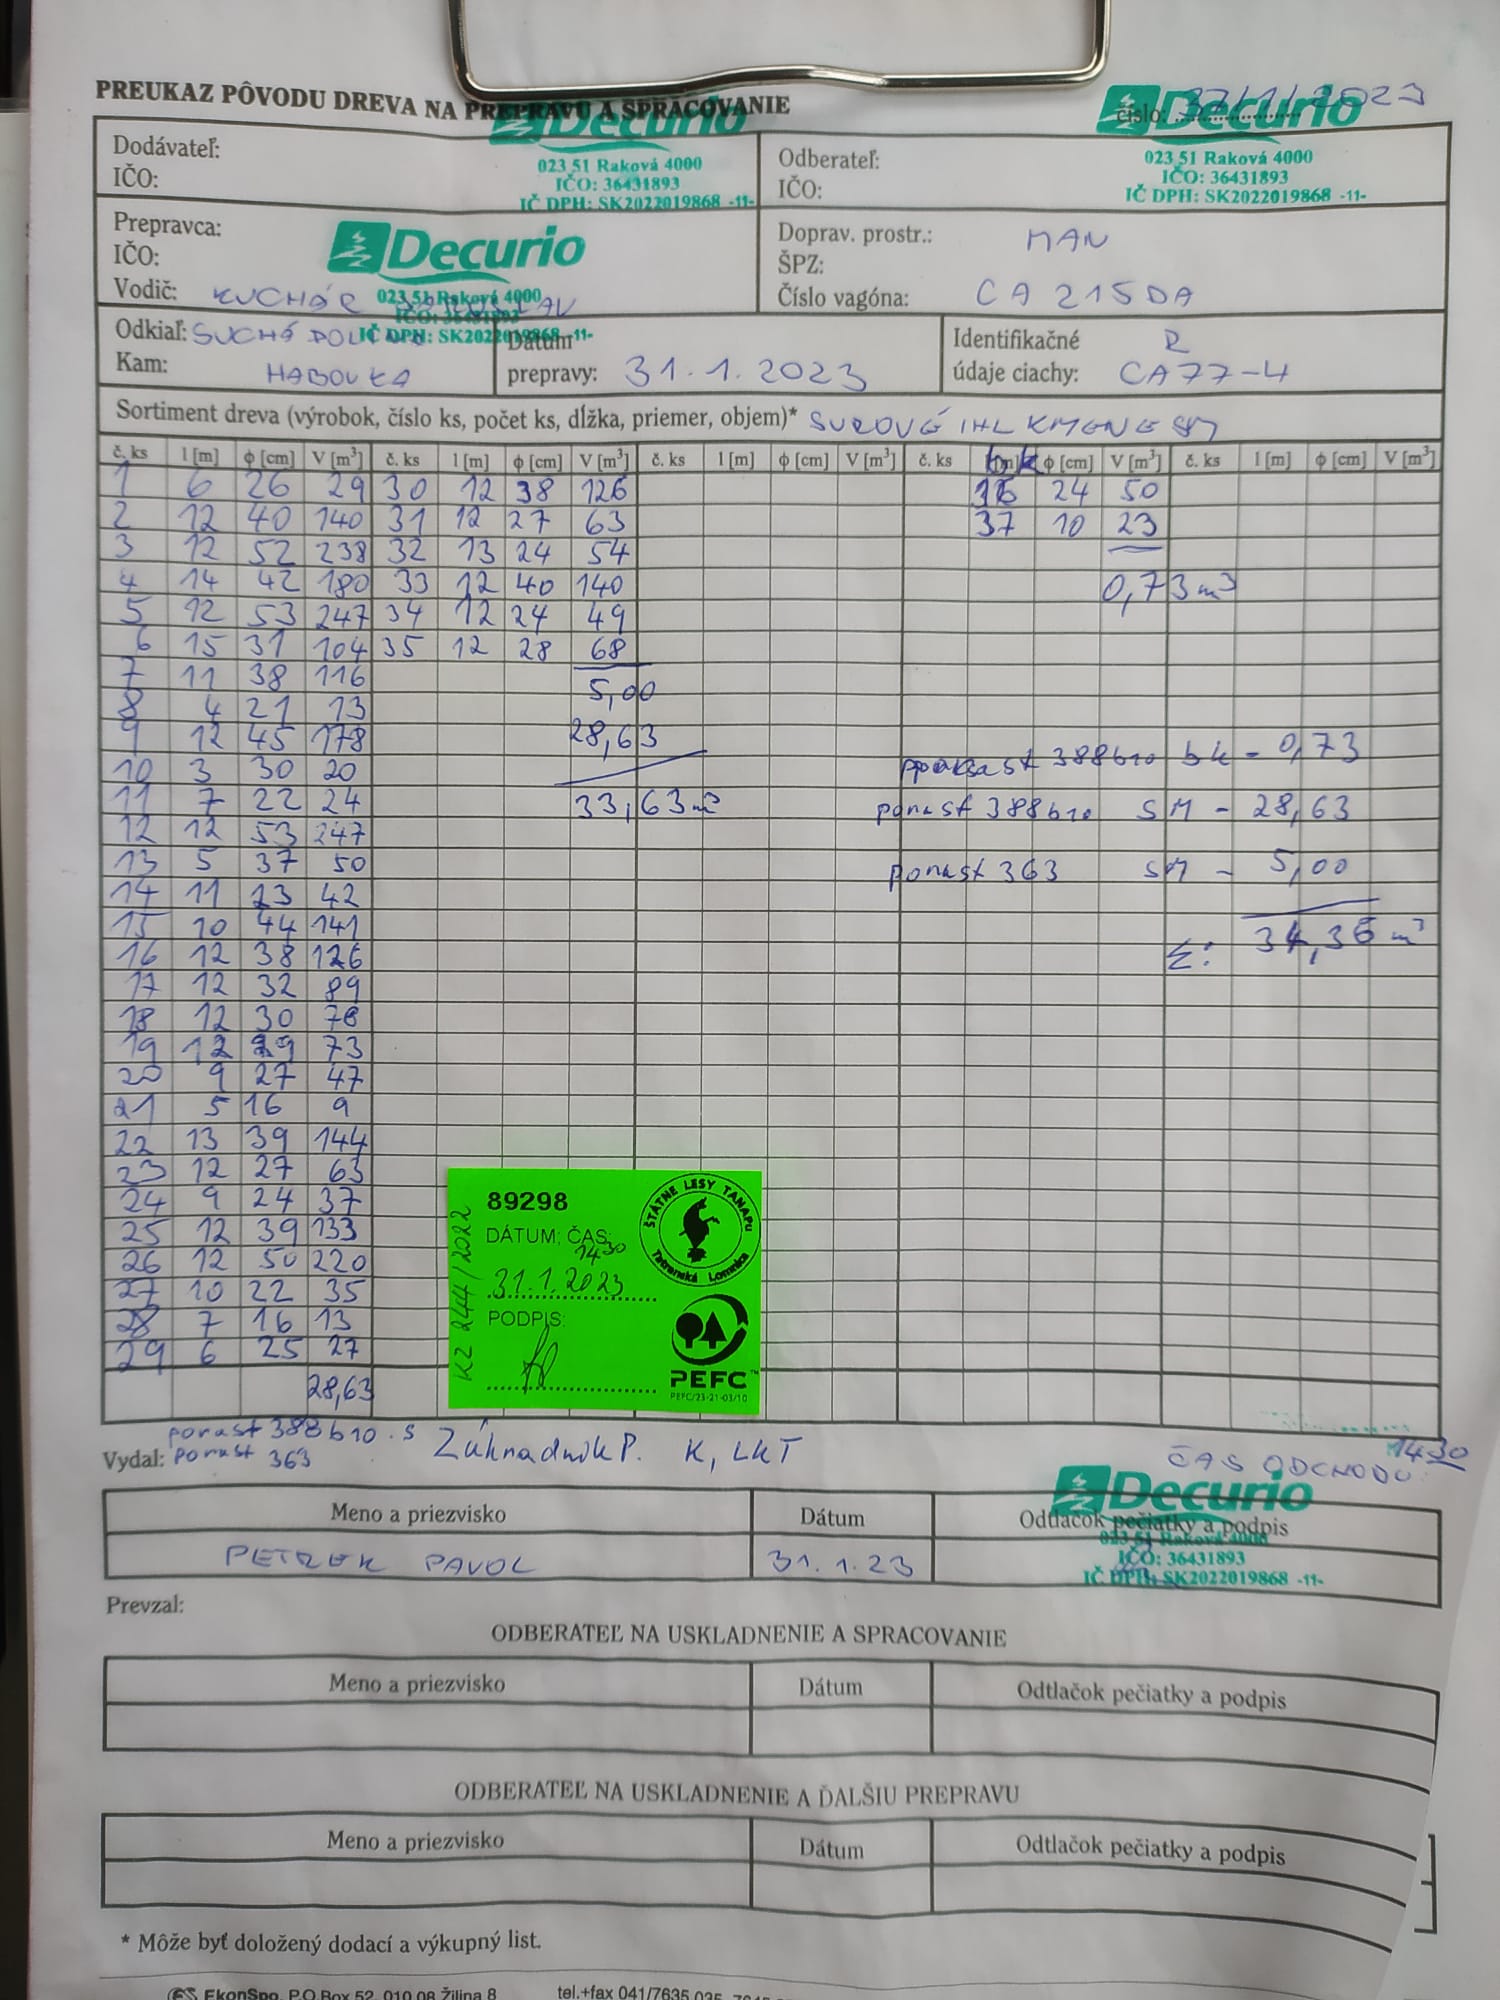 PREUKAZ PÔVODU DREVA NA PREPRAVU A SPRACOVANIE
číslo: 37/1/2023
Dodávateľ:
IČO:
Decurio
023 51 Raková 4000
IČO: 36431893
IČ DPH: SK2022019868 -11-
Odberateľ:
IČO:
Decurio
023 51 Raková 4000
IČO: 36431893
IČ DPH: SK2022019868 -11-
Prepravca:
IČO:
Vodič: KUCHÁR
Decurio
023 51 Raková 4000
IČO: 36431893
IČ DPH: SK2022019868 -11-
Doprav. prostr.: MAN
ŠPZ:
Číslo vagóna: CA 215DA
Odkiaľ: SUCHÁ
Kam: HABOVKA
Dátum
prepravy: 31.1.2023
Identifikačné R
údaje ciachy: CA77-4
Sortiment dreva (výrobok, číslo ks, počet ks, dĺžka, priemer, objem)* SUROVÉ IHL KMENE SM
č. ks l [m] ϕ [cm] V [m³] č. ks l [m] ϕ [cm] V [m³] č. ks l [m] ϕ [cm] V [m³] č. ks bk ϕ [cm] V [m³] č. ks l [m] ϕ [cm] V [m³]
1 6 26 29 30 12 38 126 36 24 50
2 12 40 140 31 12 27 63 37 10 23
3 12 52 238 32 13 24 54
4 14 42 180 33 12 40 140 0,73 m³
5 12 53 247 34 12 24 49
6 15 31 104 35 12 28 68
7 11 38 116 5,00
8 4 21 13
9 12 45 178 28,63
10 3 30 20 388b10 bk - 0,73
11 7 22 24 33,63 m³ porast 388b10 SM - 28,63
12 12 53 247
13 5 37 50 porast 363 SM - 5,00
14 11 23 42
15 10 44 141 Σ: 34,36 m³
16 12 38 126
17 12 32 89
18 12 30 78
19 12 29 73
20 9 27 47
21 5 16 9
22 13 39 144
23 12 27 63
24 9 24 37
25 12 39 133
26 12 50 220
27 10 22 35
28 7 16 13
29 6 25 27
28,63
KZ 244/2022
89298
DÁTUM, ČAS:
14 30
31.1.2023
PODPIS:
ŠTÁTNE LESY TANAPu
Tatranská Lomnica
PEFC™
PEFC/23-21-03/10
porast 388b10.s Záhradník P. K, LKT
Vydal: porast 363
ČAS ODCHODU: 14 30
Meno a priezvisko Dátum Odtlačok pečiatky a podpis
PETREK PAVOL 31.1.23
Decurio
023 51 Raková 4000
IČO: 36431893
IČ DPH: SK2022019868 -11-
Prevzal:
ODBERATEĽ NA USKLADNENIE A SPRACOVANIE
Meno a priezvisko Dátum Odtlačok pečiatky a podpis
ODBERATEĽ NA USKLADNENIE A ĎALŠIU PREPRAVU
Meno a priezvisko Dátum Odtlačok pečiatky a podpis
* Môže byť doložený dodací a výkupný list.
EkonSpo, P.O.Box 52, 010 08 Žilina 8 tel.+fax 041/7635 035,